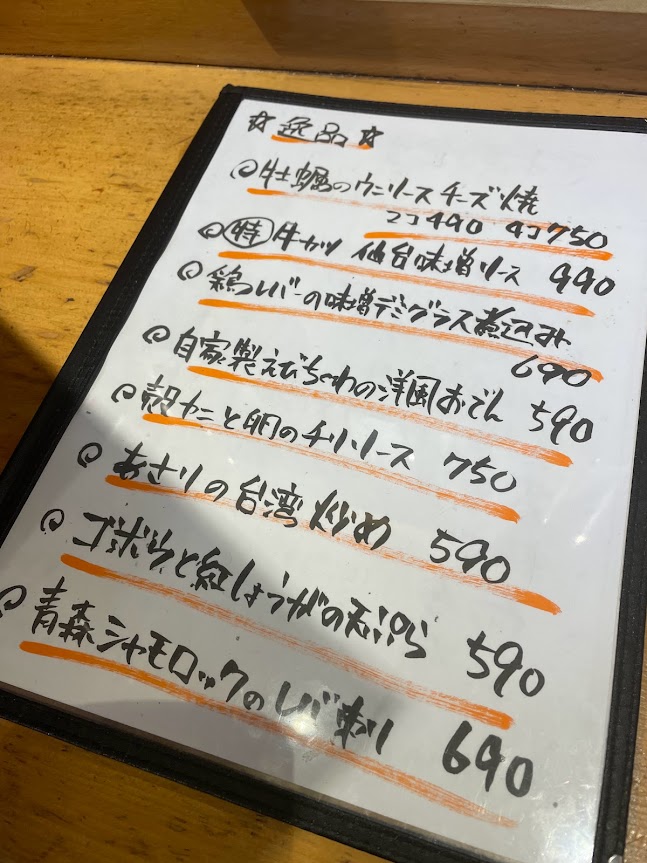 ☆逸品☆
◎牡蠣のウニソースチーズ焼
2コ490 4コ750
◎㊕牛カツ 仙台味噌ソース 990
◎鶏レバーの味噌デミグラス煮込み
690
◎自家製えびちくわの洋風おでん 590
◎殻カニと卵のチリソース 750
◎あさりの台湾炒め 590
◎ゴボウと紅しょうがの天ぷら 590
◎青森シャモロックのレバ刺し 690